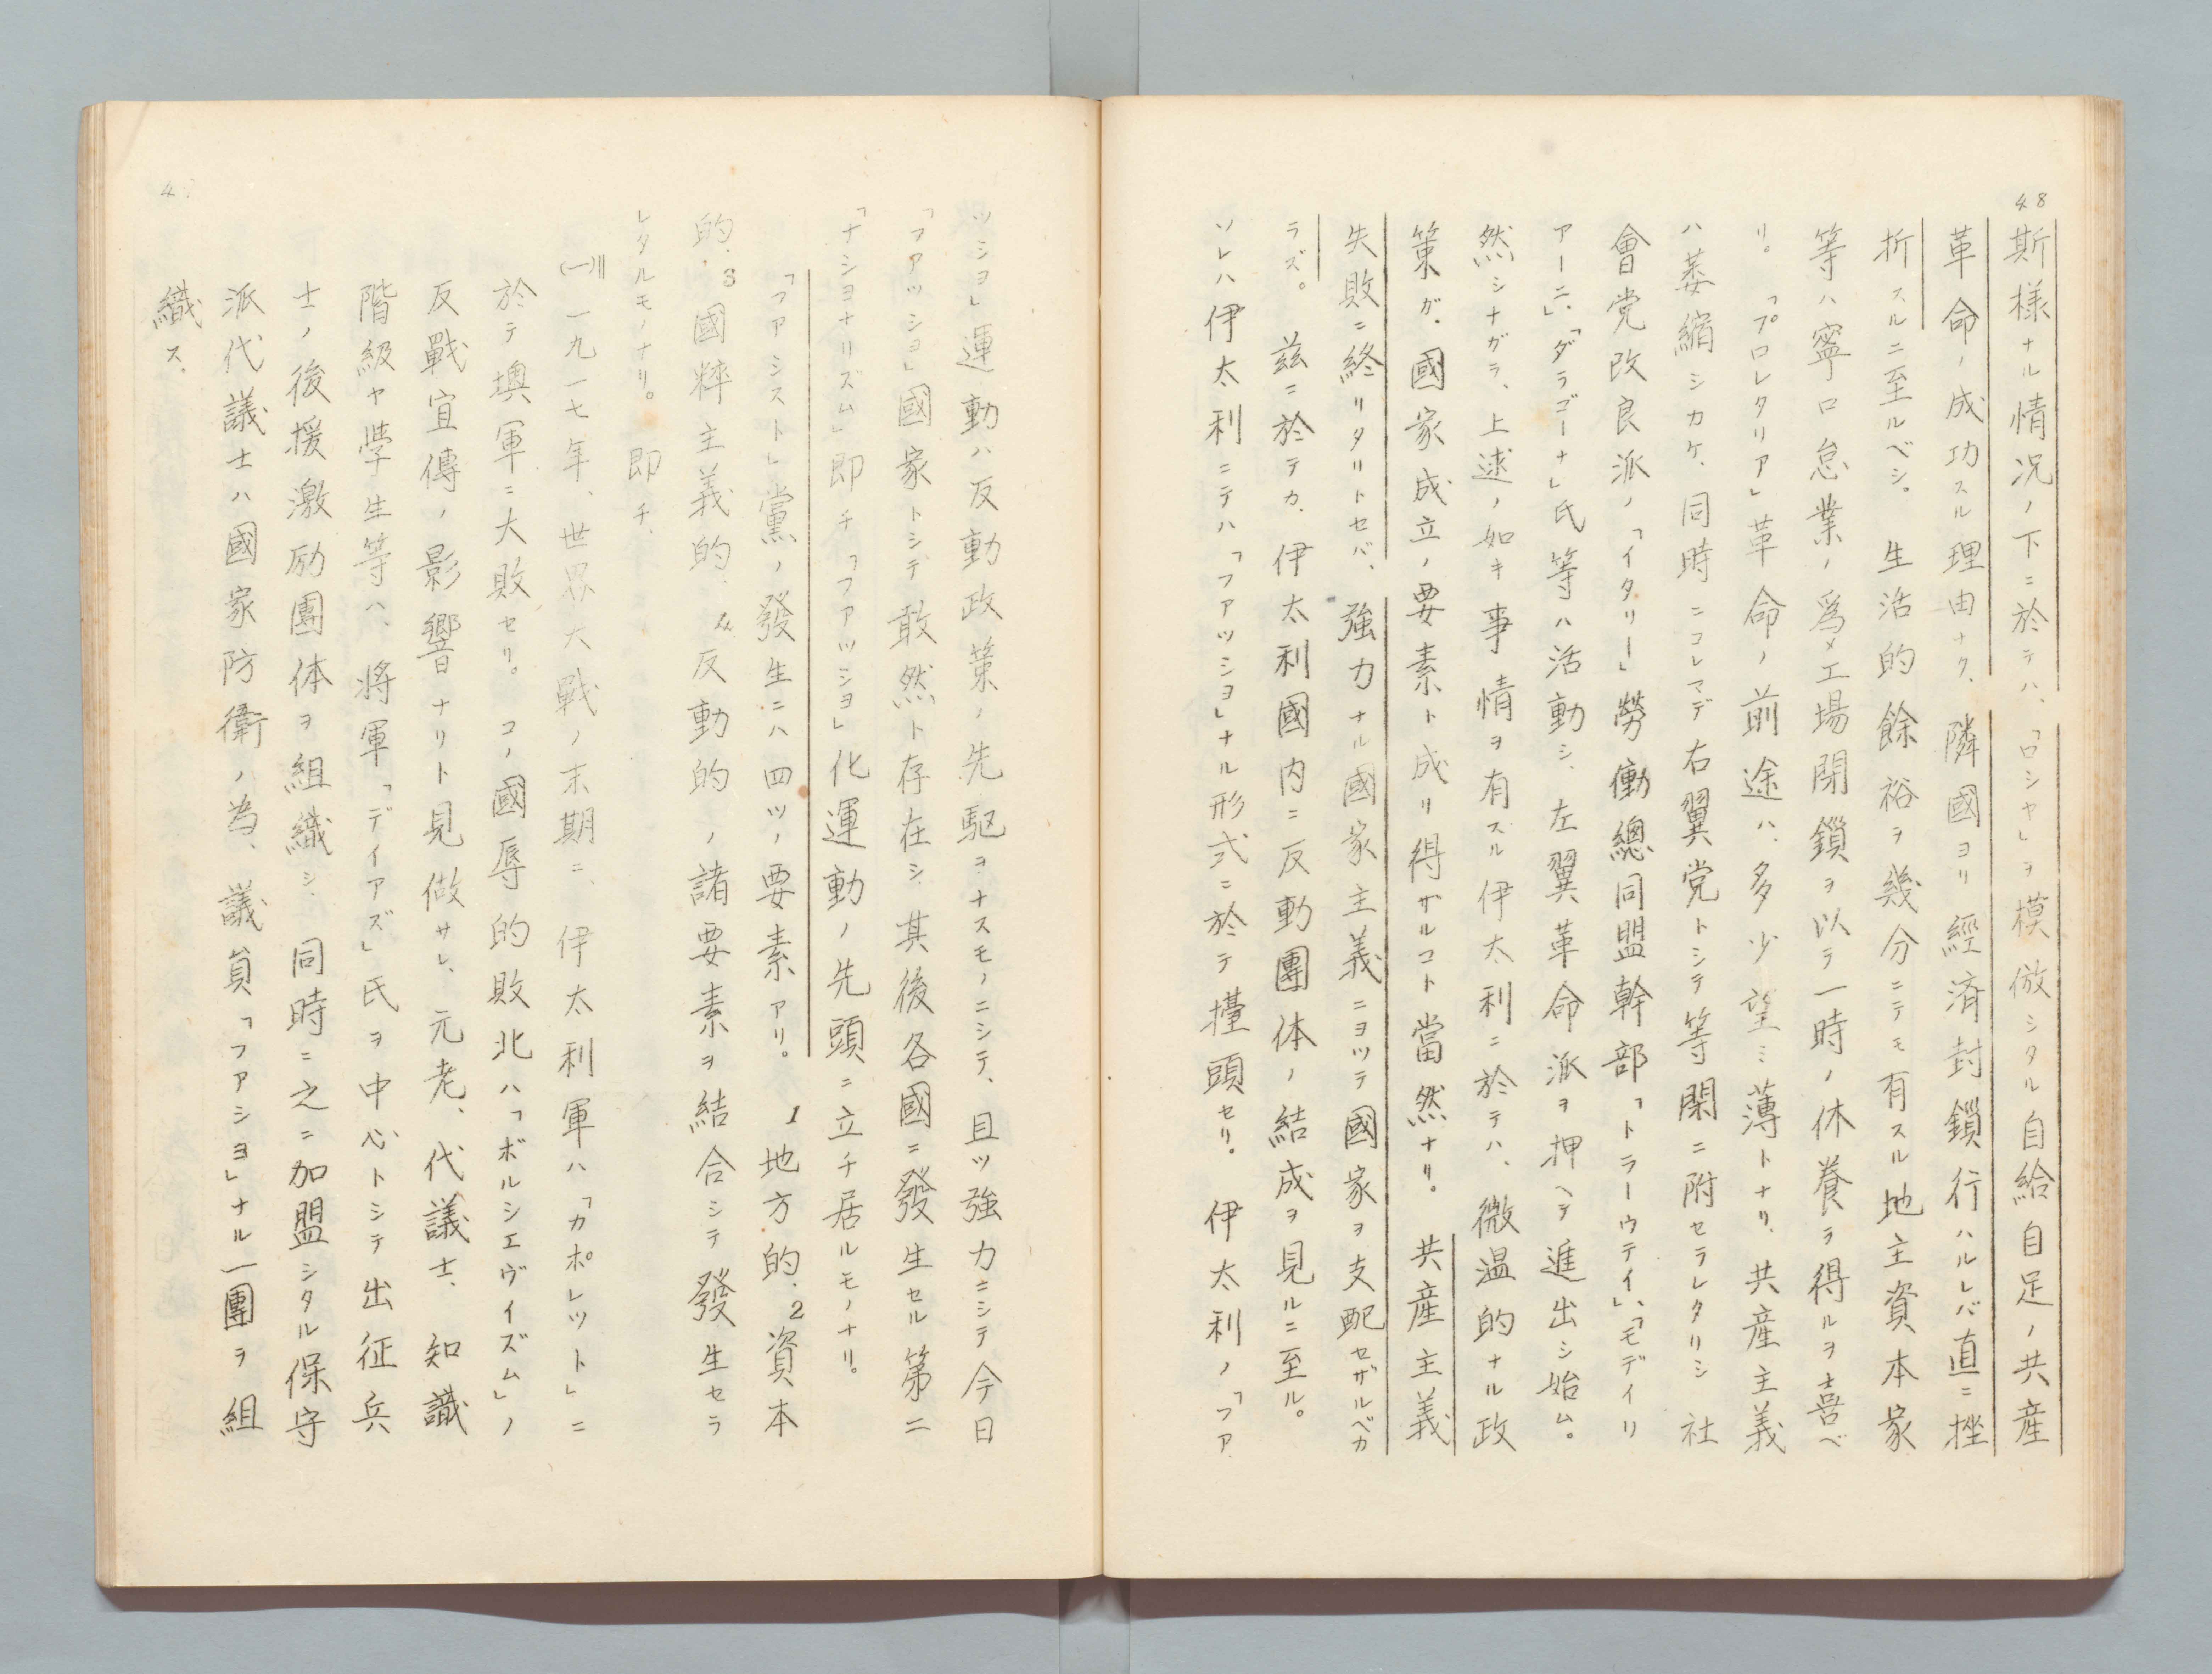 48
斯様ナル情況ノ下ニ於テハ、「ロシヤ」ヲ模倣シタル自給自足ノ共産
革命ノ成功スル理由ナク、隣國ヨリ經済封鎖行ハルレバ直ニ挫
折スルニ至ルベシ。生活的餘裕ヲ幾分ニテモ有スル地主資本家
等ハ寧ロ怠業ノ爲メ工場閉鎖ヲ以テ一時ノ休養ヲ得ルヲ喜ベ
リ。「プロレタリア」革命ノ前途ハ、多少望ミ薄トナリ、共産主義
ハ萎縮シカケ、同時ニコレマデ右翼党トシテ等閑ニ附セラレタリシ社
會党改良派ノ「イタリー」勞働總同盟幹部「トラーウテイ」、「モデイリ
アーニ」、「ダラゴーナ」氏等ハ活動シ、左翼革命派ヲ押ヘテ進出シ始ム。
然シナガラ、上述ノ如キ事情ヲ有スル伊太利ニ於テハ、微温的ナル政
策ガ、國家成立ノ要素ト成リ得ザルコト當然ナリ。共産主義
失敗ニ終リタリトセバ、強力ナル國家主義ニヨツテ國家ヲ支配セザルベカ
ラズ。茲ニ於テカ、伊太利國内ニ反動團体ノ結成ヲ見ルニ至ル。
ソレハ伊太利ニテハ「フアツシヨ」ナル形式ニ於テ擡頭セリ。伊太利ノ「フア
ツシヨ」運動ハ反動政策ノ先駆ヲナスモノニシテ、且ツ強力ニシテ今日
「フアツシヨ」國家トシテ敢然ト存在シ、其後各國ニ發生セル第二
「ナシヨナリズム」即チ「フアツシヨ」化運動ノ先頭ニ立チ居ルモノナリ。
「フアシスト」黨ノ發生ニハ四ツノ要素アリ。1地方的、2資本
的、3國粹主義的、4反動的、ノ諸要素ヲ結合シテ發生セラ
レタルモノナリ。即チ、
(一)一九一七年、世界大戰ノ末期ニ、伊太利軍ハ「カポレツト」ニ
於テ墺軍ニ大敗セリ。コノ國辱的敗北ハ「ボルシエヴイズム」ノ
反戰宣傳ノ影響ナリト見做サレ、元老、代議士、知識
階級ヤ学生等ハ、將軍「デイアズ」氏ヲ中心トシテ出征兵
士ノ後援激励團体ヲ組織シ、同時ニ之ニ加盟シタル保守
派代議士ハ國家防衛ノ為、議員「フアシヨ」ナル一團ヲ組
織ス。